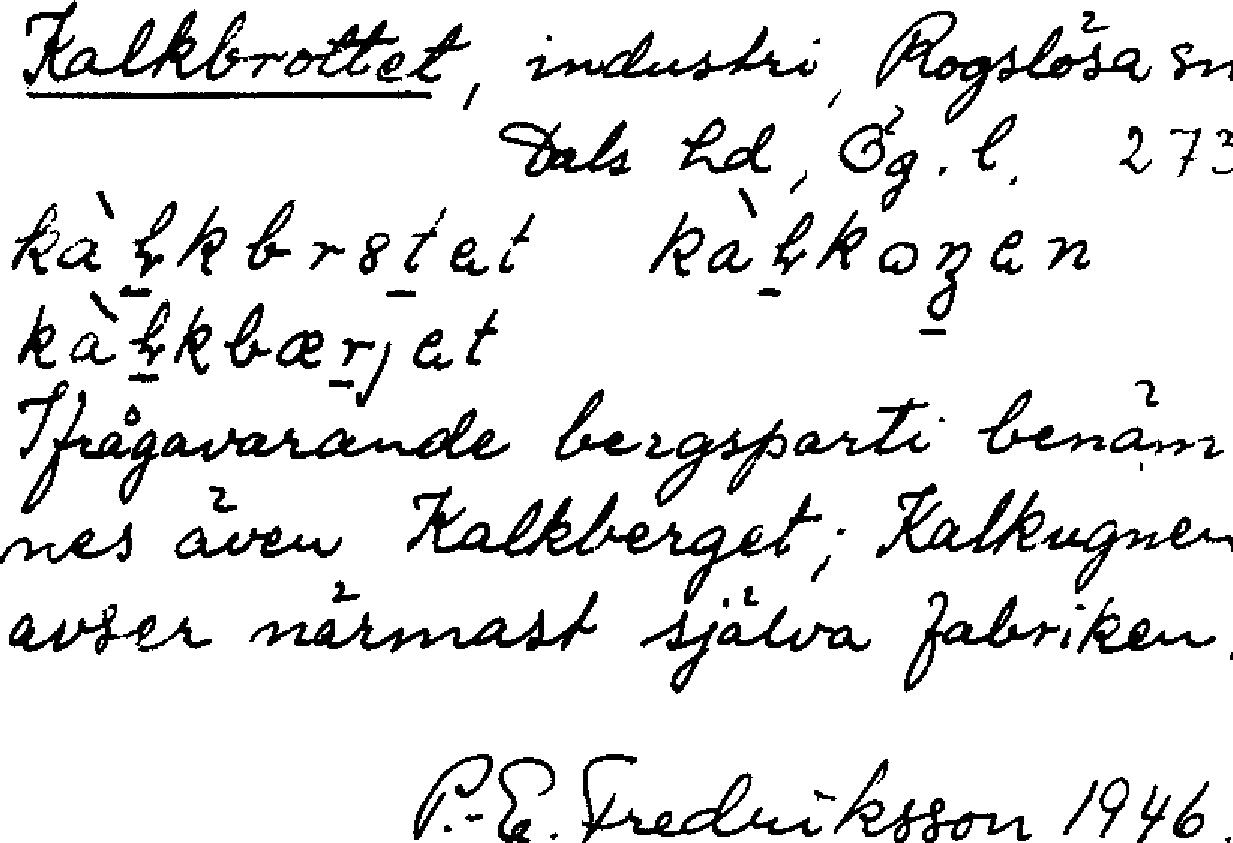 Kalkbrottet, industri, Rogslösa sn
Dals hd, Ög. l. 273
Ifrågavarande bergsparti benäm
nes även Kalkberget; Kalkugnen
avser närmast själva fabriken.
P.-E. Fredriksson 1946.